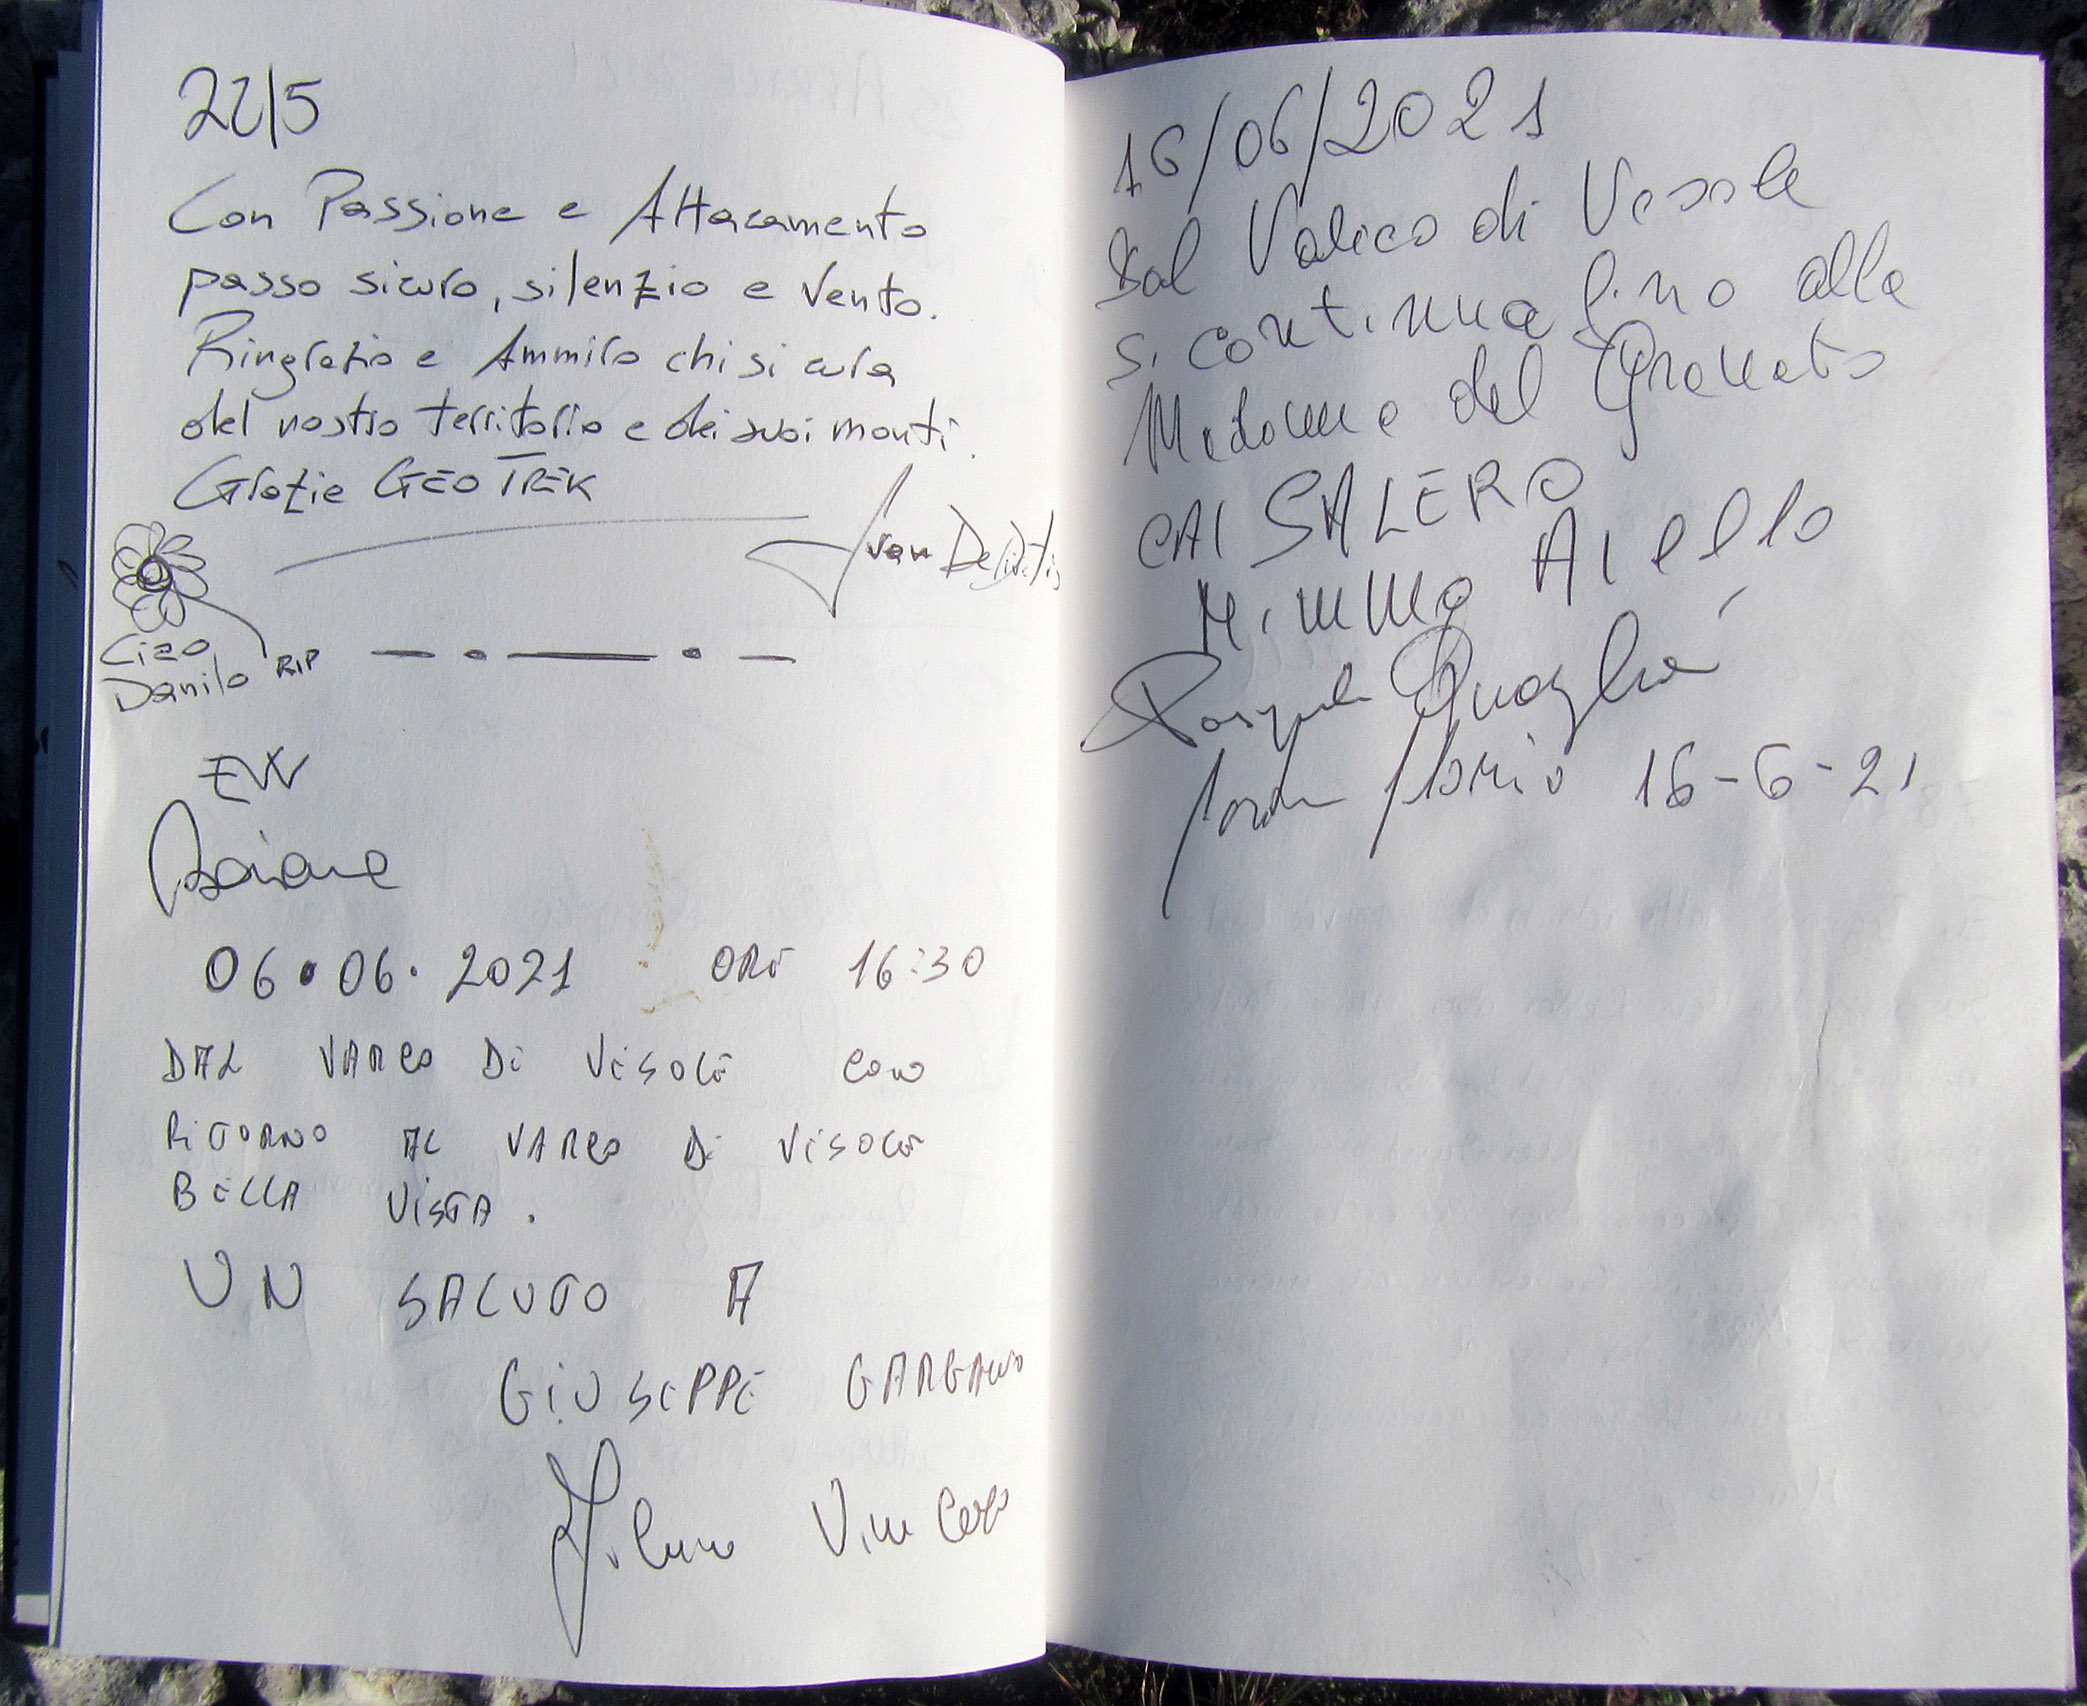 22/5
Con Passione e Attacamento
passo sicuro, silenzio e vento.
Ringrazio e Ammiro chi si cura
del nostro territorio e dei suoi monti.
Grazie GEO TREK
Ivan De
Ciro
Danilo RIP
EW
06.06.2021 ORE 16:30
DAL VARCO DI VESOLE CON
RITORNO AL VARCO DI VESOLE
BELLA VISTA.
UN SALUTO A
GIUSEPPE GARGANO
16/06/2021
Dal Valico di Vesole
Si continua fino alla
Madonna del Granato
CAI SALERO
Mimmo Aiello
Pasquale Quaglia
Florio 16-6-21